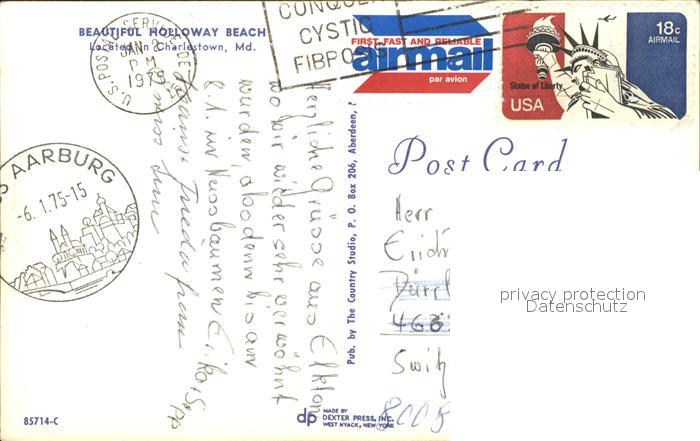 BEAUTIFUL HOLLOWAY BEACH
Located in Charlestown, Md.
U.S. POSTAL SERVICE
JAN 2
PM
1975
CONQUER
CYSTIC
FIBROSIS
FIRST, FAST AND RELIABLE
airmail
par avion
18c
AIRMAIL
Statue of Liberty
USA
AARBURG
-6.1.75-15
Herzliche Grüsse aus Elkton
wo wir wieder sehr verwöhnt
wurden, also denn bis am
8.1. in Nussbaumen Erika + Sepp
Pub. by The Country Studio, P. O. Box 206, Aberdeen,
Post Card
Herr
Erich
Dürr
Switz
8008
privacy protection
Datenschutz
85714-C
dp
MADE BY
DEXTER PRESS, INC.
WEST NYACK, NEW YORK